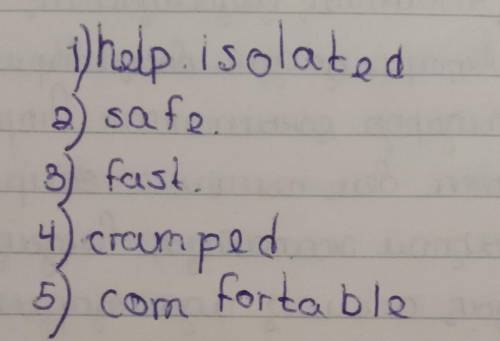 1) help. isolated
2) safe.
3) fast.
4) cramped.
5) com fortable